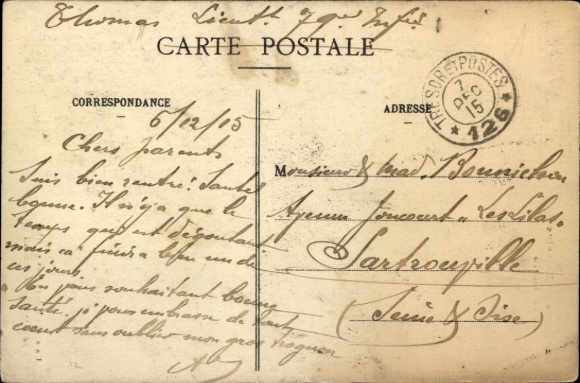 Thomas Lieutt 79e Infie
CARTE POSTALE
CORRESPONDANCE
ADRESSE
TRESOR ET POSTES
7
DEC
15
* 126 *
6/12/15
Chers parents
Suis bien rentré. Santé
bonne. Il n'y a que le
temps qui est dégoutant
mais ca finira bien un de
ces jours.
En vous souhaitant bonne
santé. je vous embrasse de tout
coeur sans oublier mon gros
Monsieur & Mad.
Joncourt "Les Lilas"
Sartrouville
(Seine & Oise)